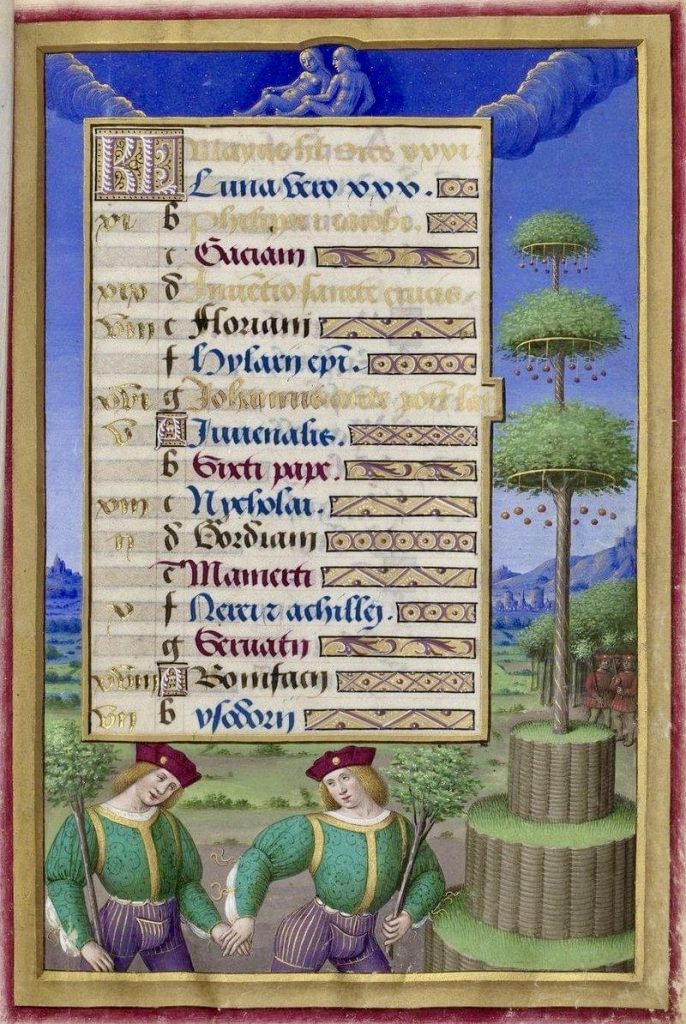 KL Mayus habet dies xxxi
Luna vero xxx.
xi b Philippi et iacobi.
c Gaciani
xix d Inventio sancte crucis.
viii e Floriani
f Hylarij epi.
xvi g Johannis ante port la
v A Juvenalis.
b Sixti pape.
xiii c Nycholai.
ii d Gordiani
e Mamerti
x f Nerei et achillei.
g Servatij
xviii A Bonifacij
vii b ysidorij